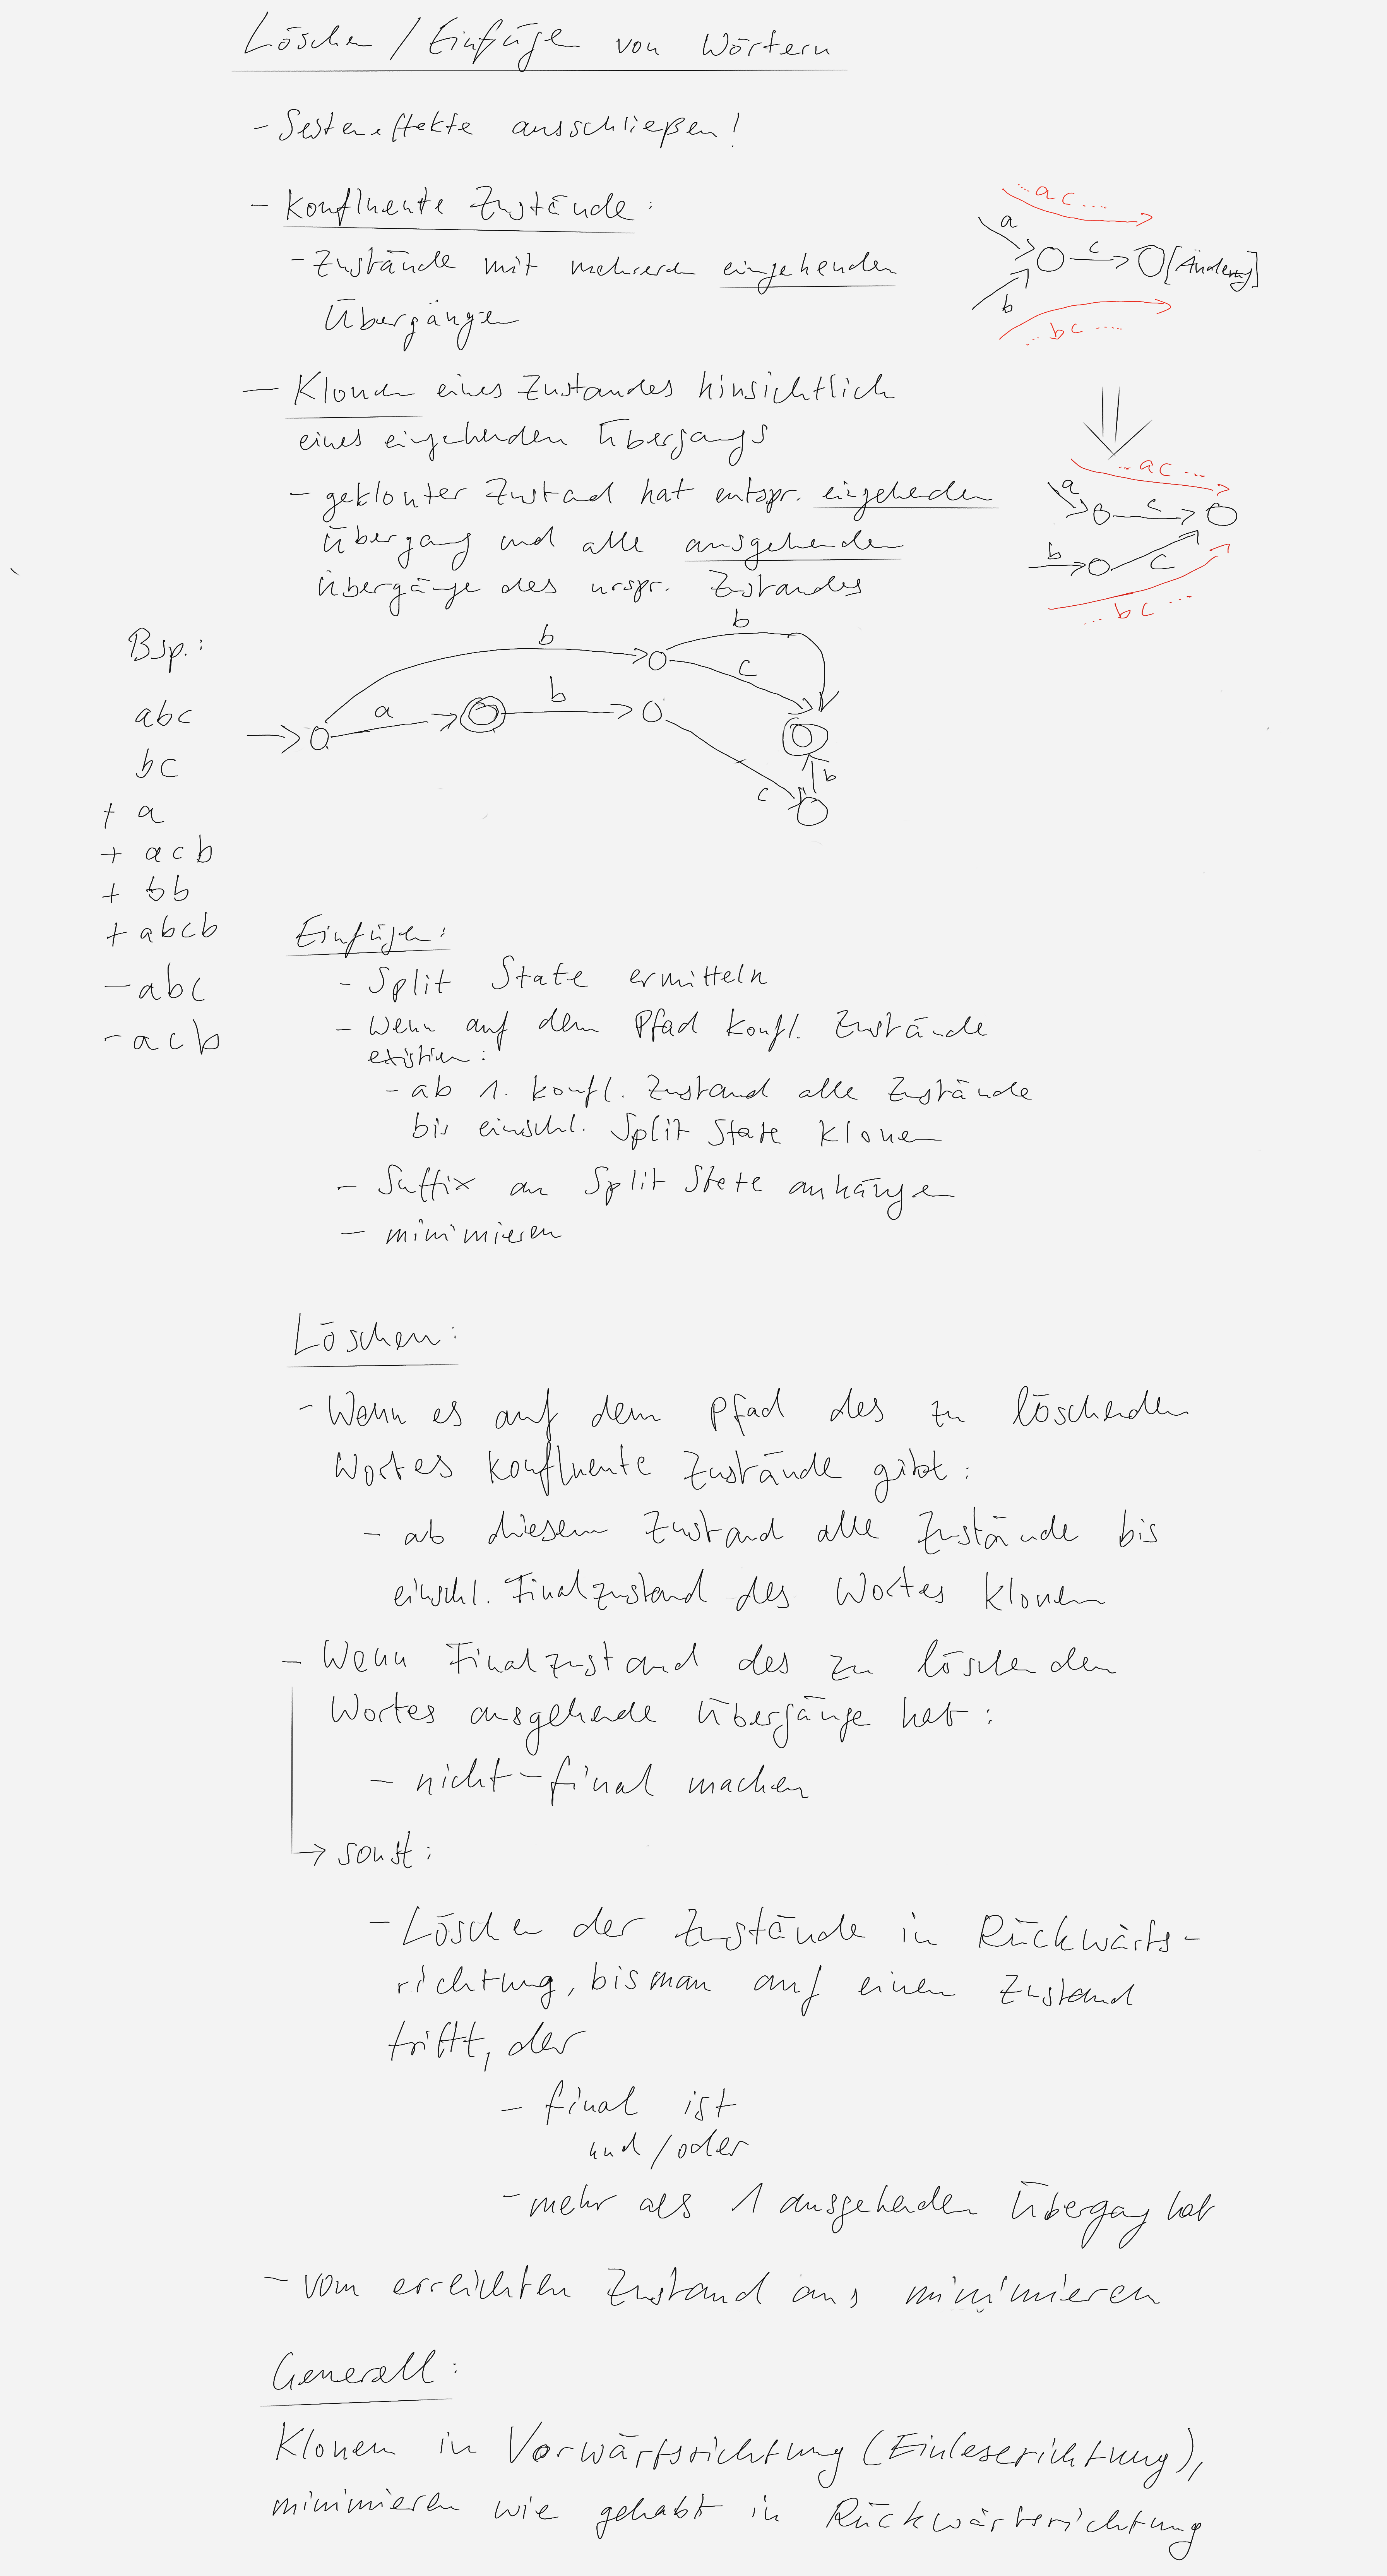 Löschen / Einfügen von Wörtern
- Seiteneffekte ausschließen!
- Konfluente Zustände:
- Zustände mit mehreren eingehenden
Übergängen
... ac ....
a
c
[Änderung]
b
... bc ....
- Klonen eines Zustandes hinsichtlich
eines eingehenden Übergangs
- geklonter Zustand hat entspr. eingehenden
Übergang und alle ausgehenden
Übergänge des urspr. Zustandes
... ac ...
a
c
b
c
... bc ...
Bsp.:
b
b
c
a
b
b
c
abc
bc
+ a
+ acb
+ bb
+ abcb
- abc
- acb
Einfügen:
- Split State ermitteln
- Wenn auf dem Pfad konfl. Zustände
existieren:
- ab 1. konfl. Zustand alle Zustände
bis einschl. Split State klonen
- Suffix an Split State anhängen
- minimieren
Löschen:
- Wenn es auf dem Pfad des zu löschenden
Wortes konfluente Zustände gibt:
- ab diesem Zustand alle Zustände bis
einschl. Finalzustand des Wortes klonen
- Wenn Finalzustand des zu löschenden
Wortes ausgehende Übergänge hat:
- nicht-final machen
→ sonst:
- Löschen der Zustände in Rückwärts-
richtung, bis man auf einen Zustand
trifft, der
- final ist
und/oder
- mehr als 1 ausgehenden Übergang hat
- vom erreichten Zustand aus minimieren
Generell:
Klonen in Vorwärtsrichtung (Einleserichtung),
minimieren wie gehabt in Rückwärtsrichtung